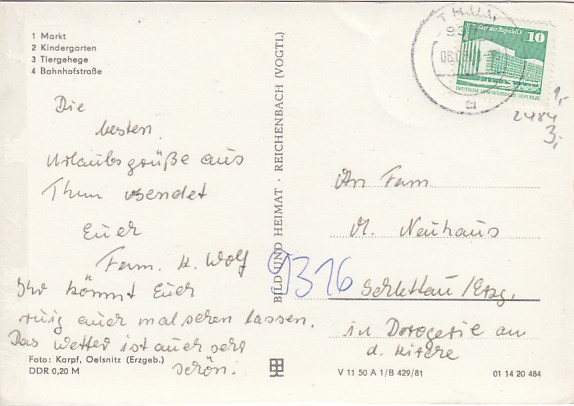 1 Markt
2 Kindergarten
3 Tiergehege
4 Bahnhofstraße
Die
besten
Urlaubsgrüße aus
Thum sendet
Euer
Fam. K. Wolf
Ihr könnt Euch
ruig auch mal sehen lassen.
Das Wetter ist auch sehr
schön.
Foto: Karpf, Oelsnitz (Erzgeb.)
DDR 0,20 M
BILD UND HEIMAT · REICHENBACH (VOGTL)
THUM
10
DEUTSCHE DEMOKRATISCHE REPUBLIK
1,-
2484
3,-
An Fam
M. Neuhaus
9316
Schlettau/Erzg.
in Drogerie an
d. Kirche
V 11 50 A 1/B 429/81
01 14 20 484